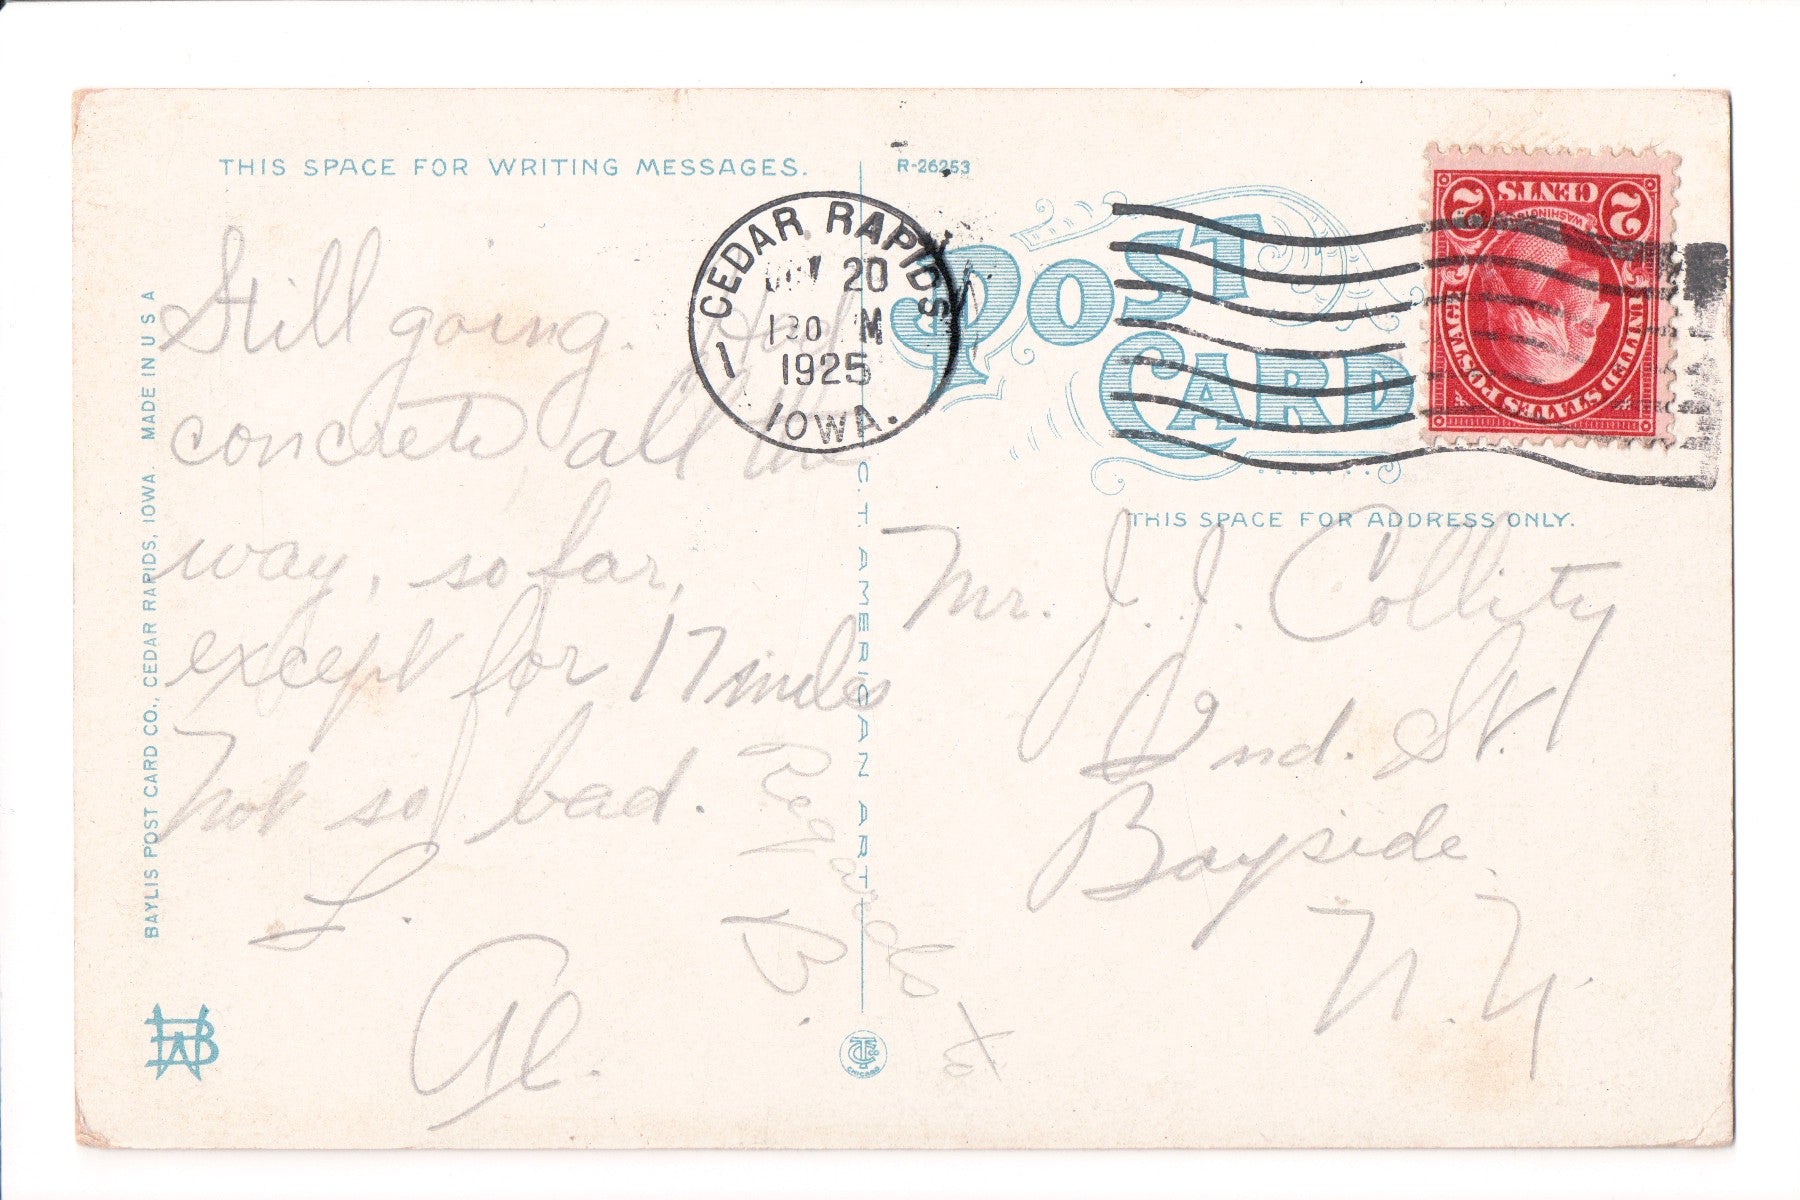 THIS SPACE FOR WRITING MESSAGES.
R-26253
POST
CARD
CEDAR RAPIDS
20
130 M
1925
1
IOWA.
2 CENTS 2
WASHINGTON
UNITED STATES POSTAGE
THIS SPACE FOR ADDRESS ONLY.
Still going. Had
concrete all the
way, so far,
except for 17 miles
Not so bad.
L.
Al.
Regards to
B.
Mr. J. J. Collity
2nd. St.
Bayside
N.Y.
BAYLIS POST CARD CO., CEDAR RAPIDS, IOWA MADE IN U S A
C.T. AMERICAN ART
CHICAGO